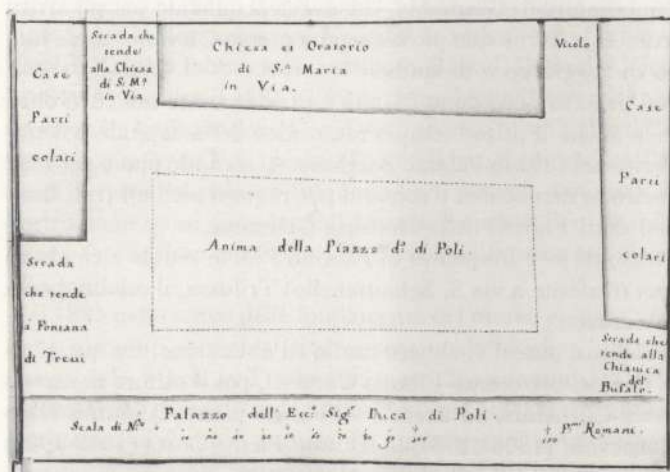 Case
Parti
colari
Strada che
tende
alla Chiesa
di S. Mª
in Via
Chiesa et Oratorio
di S.ª Maria
in Via.
Vicolo
Case
Parti
colari
Anima della Piazza dª. di Poli
Strada
che tende
à Fontana
di Trevi
Strada che
tende alla
Chiavica
del
Bufalo.
Palazzo dell' Ecc.º Sigr Duca di Poli
Scala di
Pmi Romani.